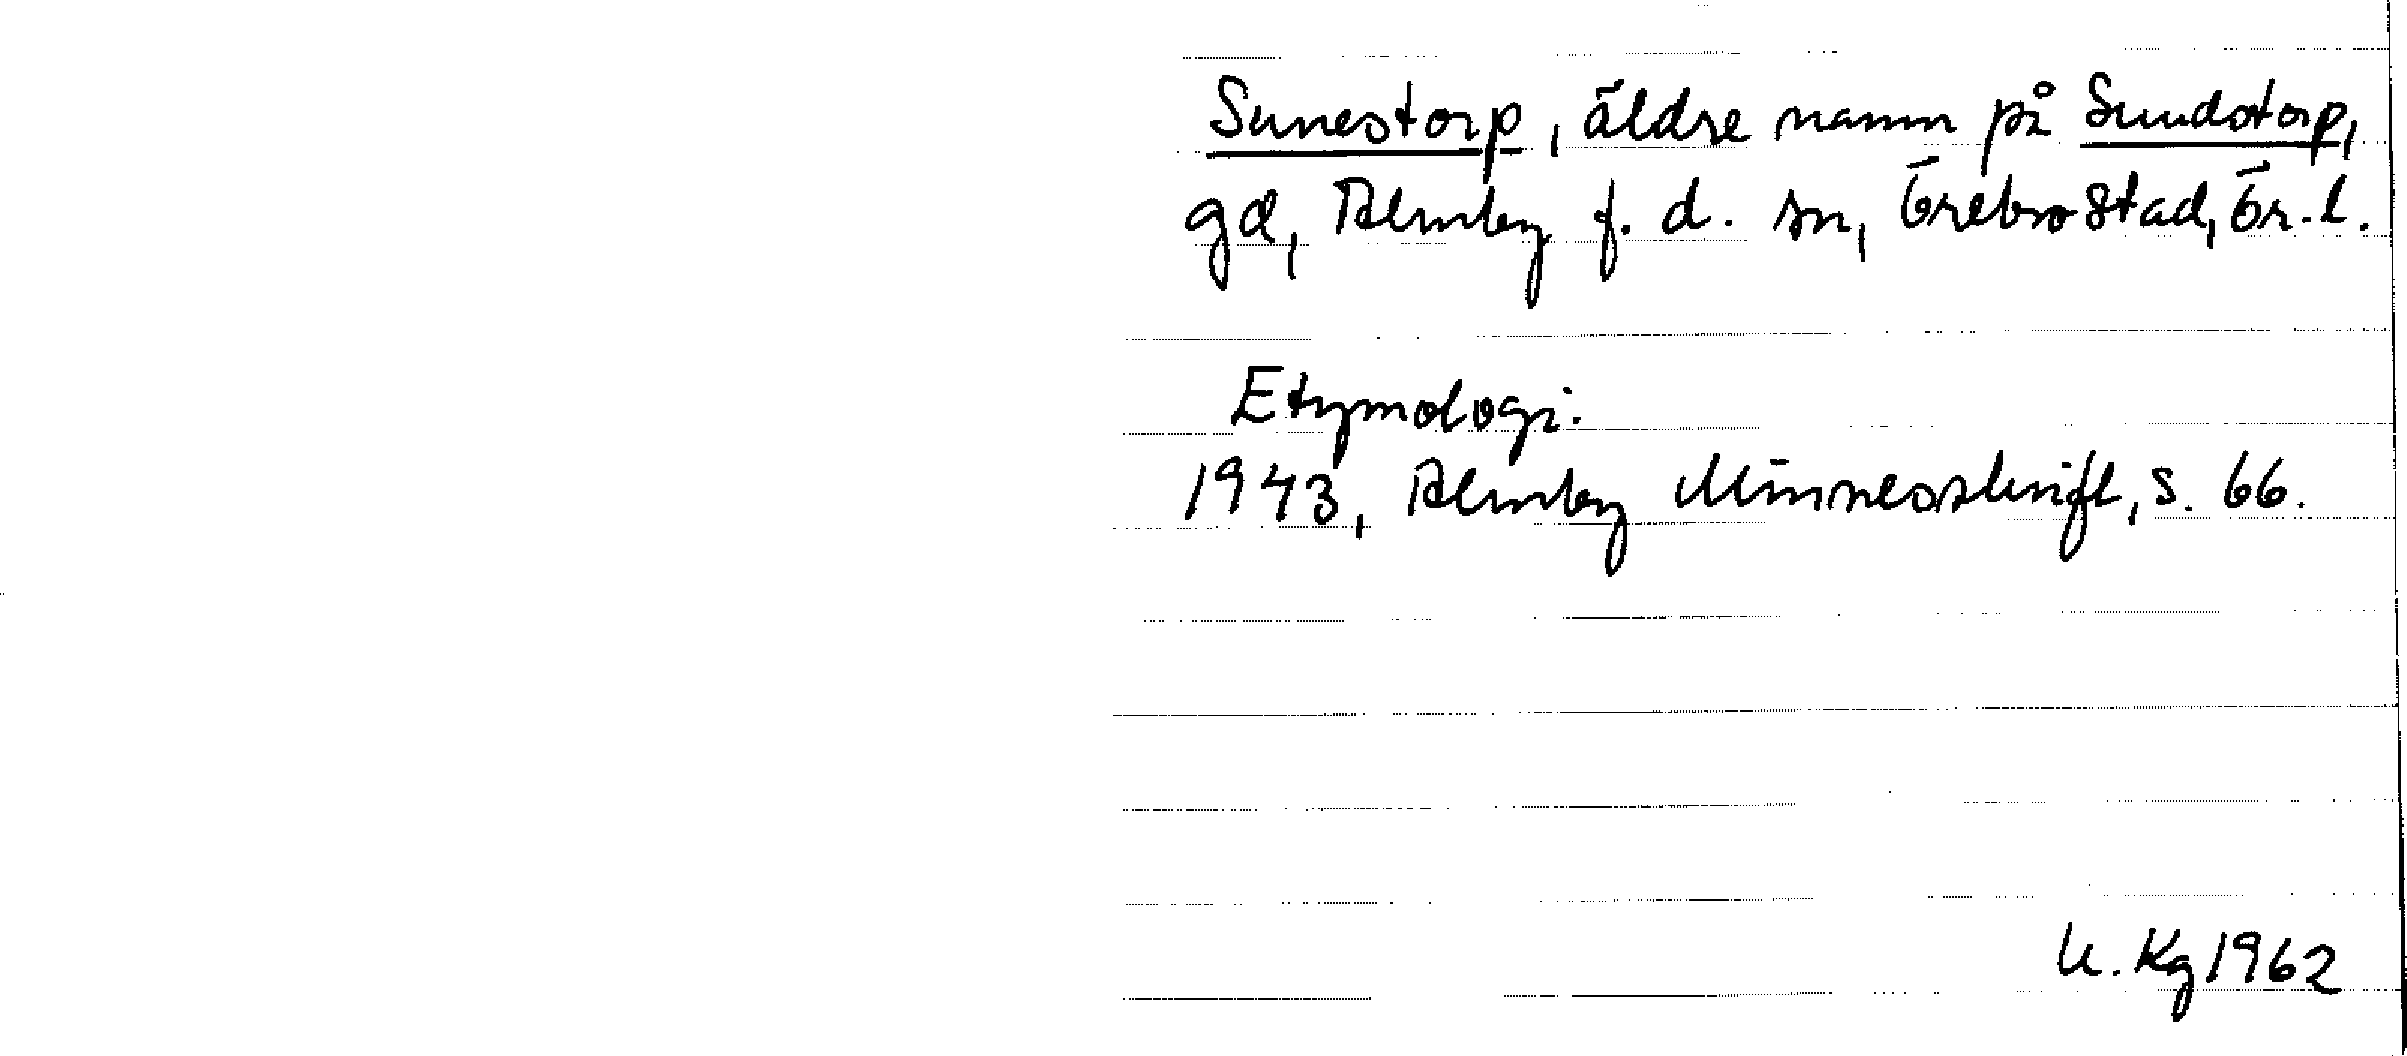 Sunestorp, äldre namn på Sundstorp,
gd, Almby f. d. sn, Örebro stad, Ör. l.
Etymologi.
1943, Almby Minnesskrift, s. 66.
U. Kg 1962